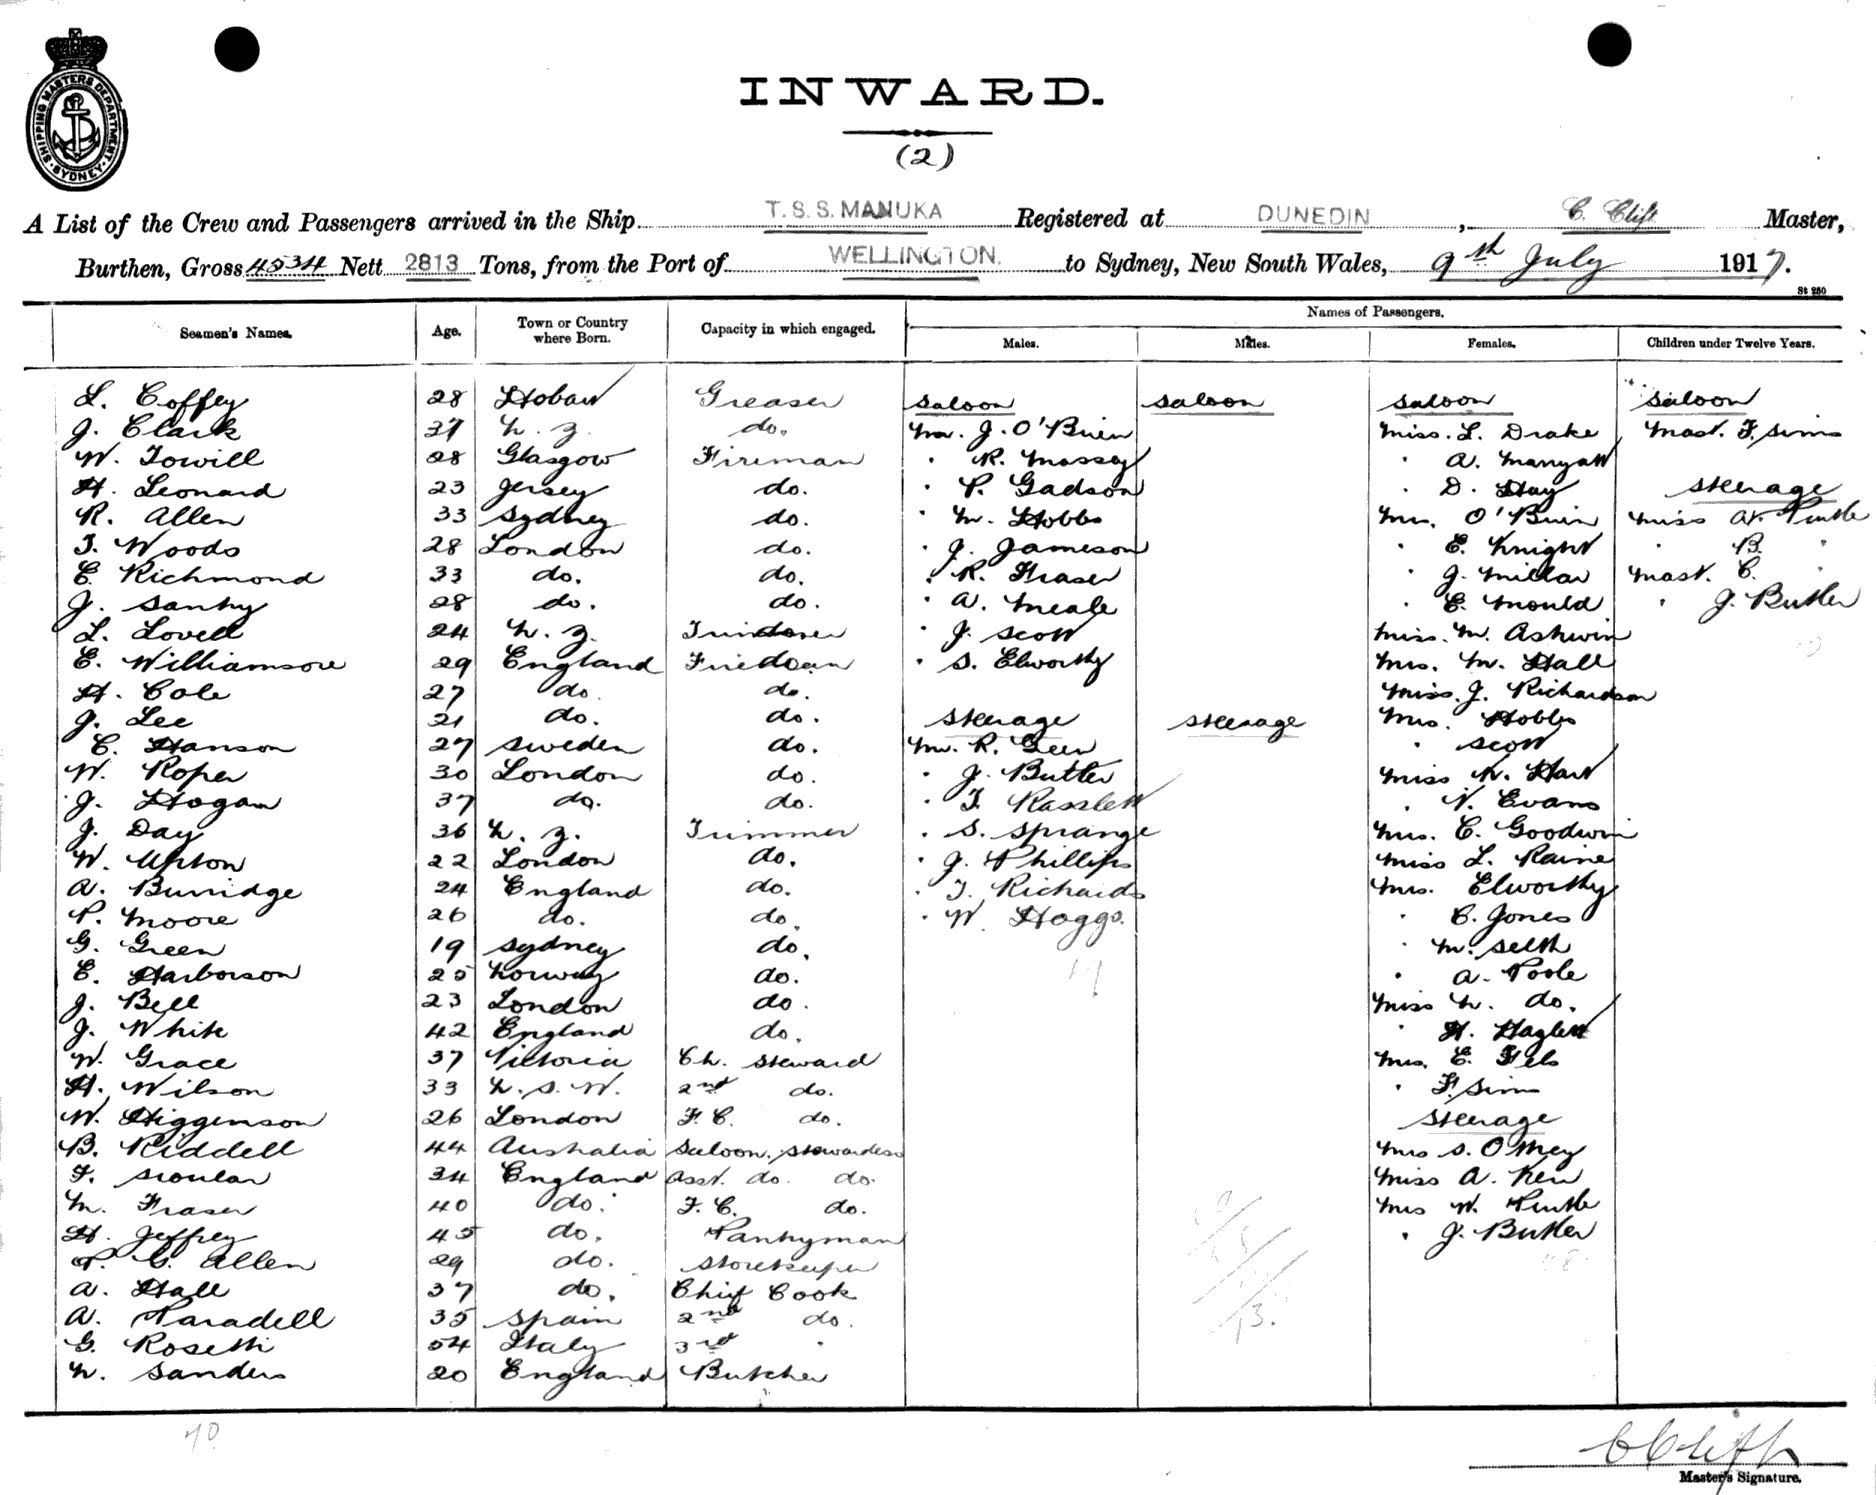 SHIPPING MASTERS DEPARTMENT. SYDNEY
INWARD.
(2)
A List of the Crew and Passengers arrived in the Ship T.S.S. MANUKA Registered at DUNEDIN, C. Clift Master,
Burthen, Gross 4534 Nett 2813 Tons, from the Port of WELLINGTON. to Sydney, New South Wales, 9th July 1917.
St 250
Names of Passengers.
Seamen's Names. Age. Town or Country where Born. Capacity in which engaged. Males. Males. Females. Children under Twelve Years.
L. Coffey 28 Hobart Greaser Saloon Saloon Saloon Saloon
J. Clark 37 N. Z. do. Mr. J. O'Brien Miss. L. Drake Mast. F. Sims
W. Towill 28 Glasgow Fireman " R. Massey " A.
H. Leonard 23 Jersey do. " P. Gadson " D. Hay Steerage
R. Allen 33 Sydney do. " M. Hobbs Mrs. O'Brien Miss
T. Woods 28 London do. " J. Jameson " E. Knight " B. "
E. Richmond 33 do. do. " R. Fraser " J. Millar Mast. C. "
J. 28 do. do. " A. Meale " E. Mould " J. Butler
L. Lovell 24 N. Z. " J. Scott Miss. M. Ashwin
E. Williamson 29 England Fireman " S. Elworthy Mrs. M. Hall
H. Cole 27 do. do. Miss. J. Richardson
J. Lee 21 do. do. Steerage Steerage Mrs. Hobbs
C. Hanson 27 Sweden do. Mr. R. Geen " Scott
W. Roper 30 London do. " J. Butler Miss N. Hart
J. Hogan 37 do. do. " T. " N. Evans
J. Day 36 N. Z. Trimmer " S. Sprange Mrs. C. Goodwin
W. Upton 22 London do. " J. Phillips Miss L. Raine
A. Burridge 24 England do. " T. Richards Mrs. Elworthy
P. Moore 26 do. do. " W. Hoggs. " C. Jones
G. Green 19 Sydney do. " M. Selth
E. Harborson 25 Norway do. " A. Poole
J. Bell 23 London do. Miss N. do.
J. White 42 England do. " H.
W. Grace 37 Victoria Ch. Steward Mrs. E. Fels
H. Wilson 33 N. S. W. 2nd do. " F. Sims
W. Higginson 26 London F. C. do. Steerage
B. Riddell 44 Australia Saloon. Stewardess Mrs S.
F. 34 England Asst. do. do. Miss A.
M. Fraser 40 do. F. C. do. Mrs W.
H. Jeffrey 45 do. Pantryman " J. Butler
C. Allen 29 do. Storekeeper
A. Hall 37 do. Chief Cook
A. Paradell 35 Spain 2nd do.
G. Rosetti 54 Italy 3rd "
N. Sanders 20 England Butcher
C Clift
Master's Signature.